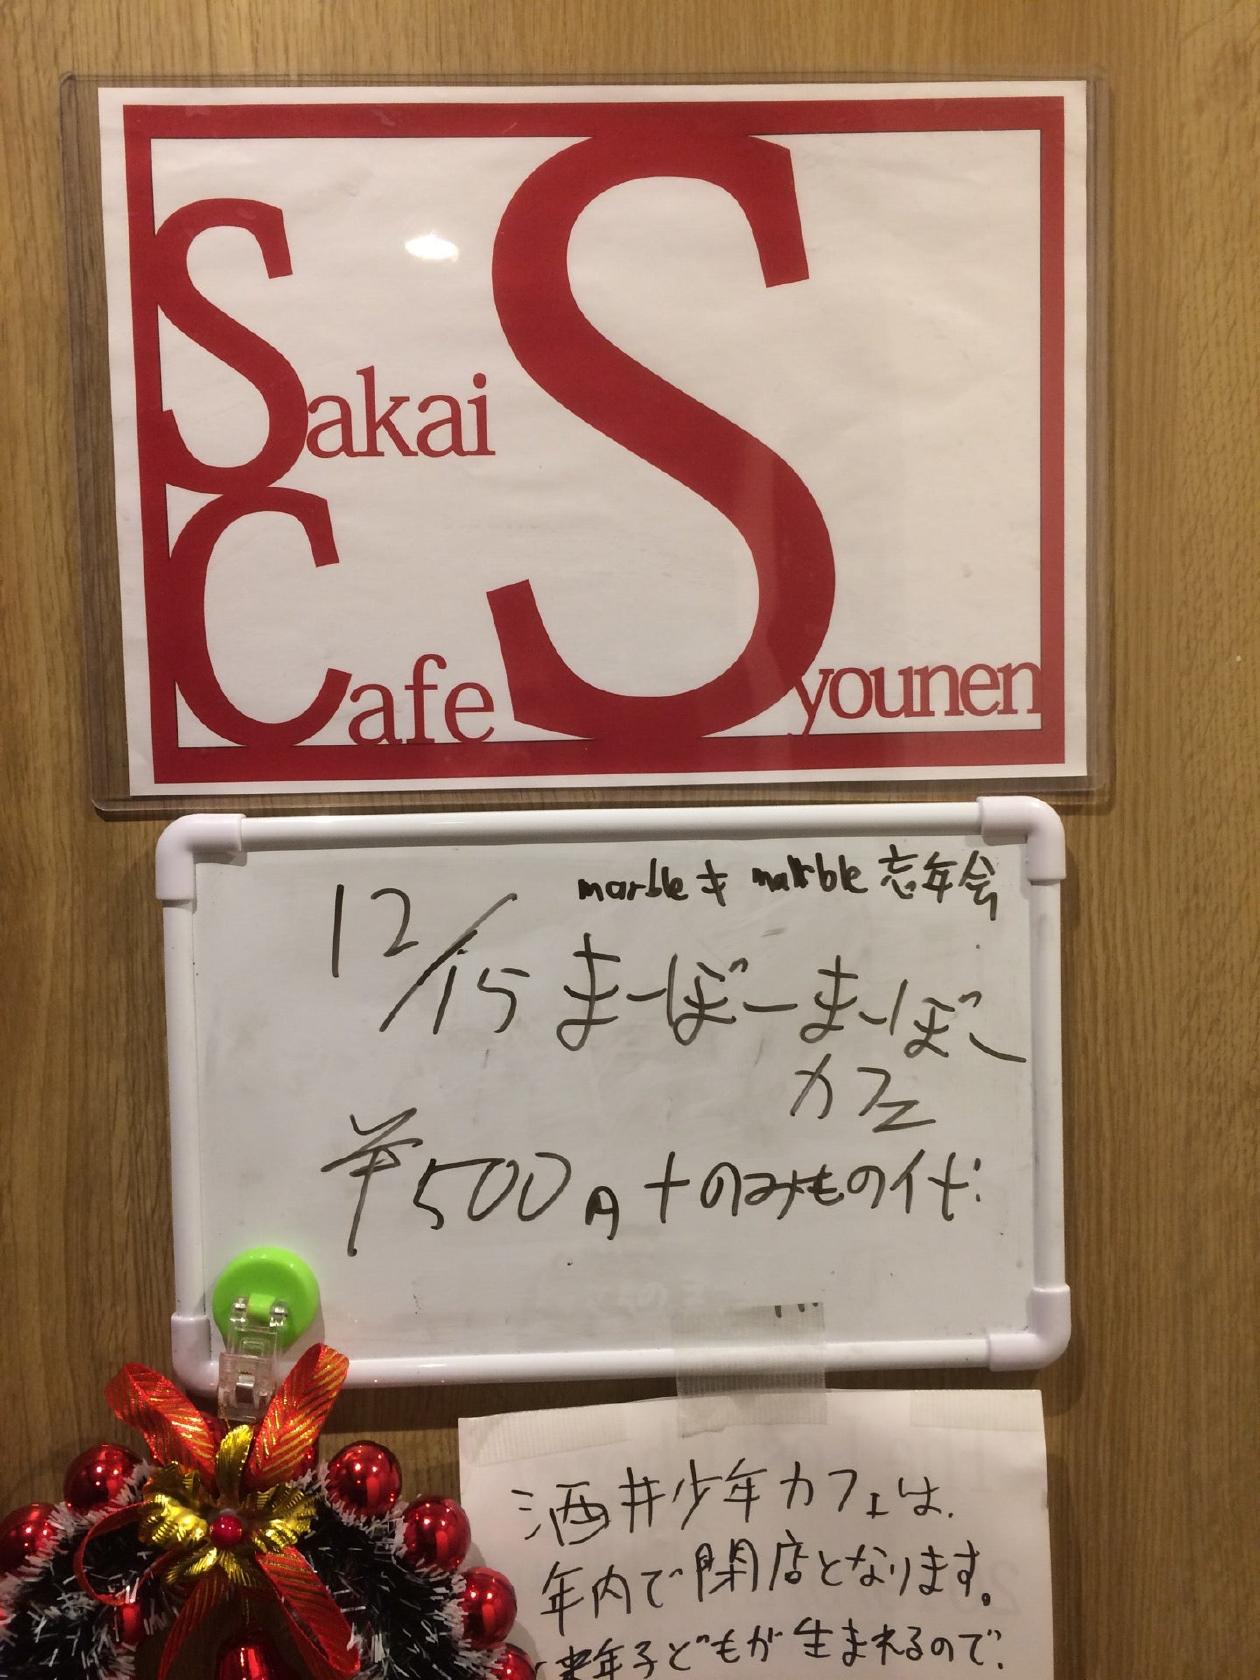 Sakai
Cafe Syounen
marble≠marble 忘年会
12/15 まーぼーまーぼー
カフェ
¥500円+のみもの代
酒井少年カフェは、
年内で閉店となります。
来年子どもが生まれるので、